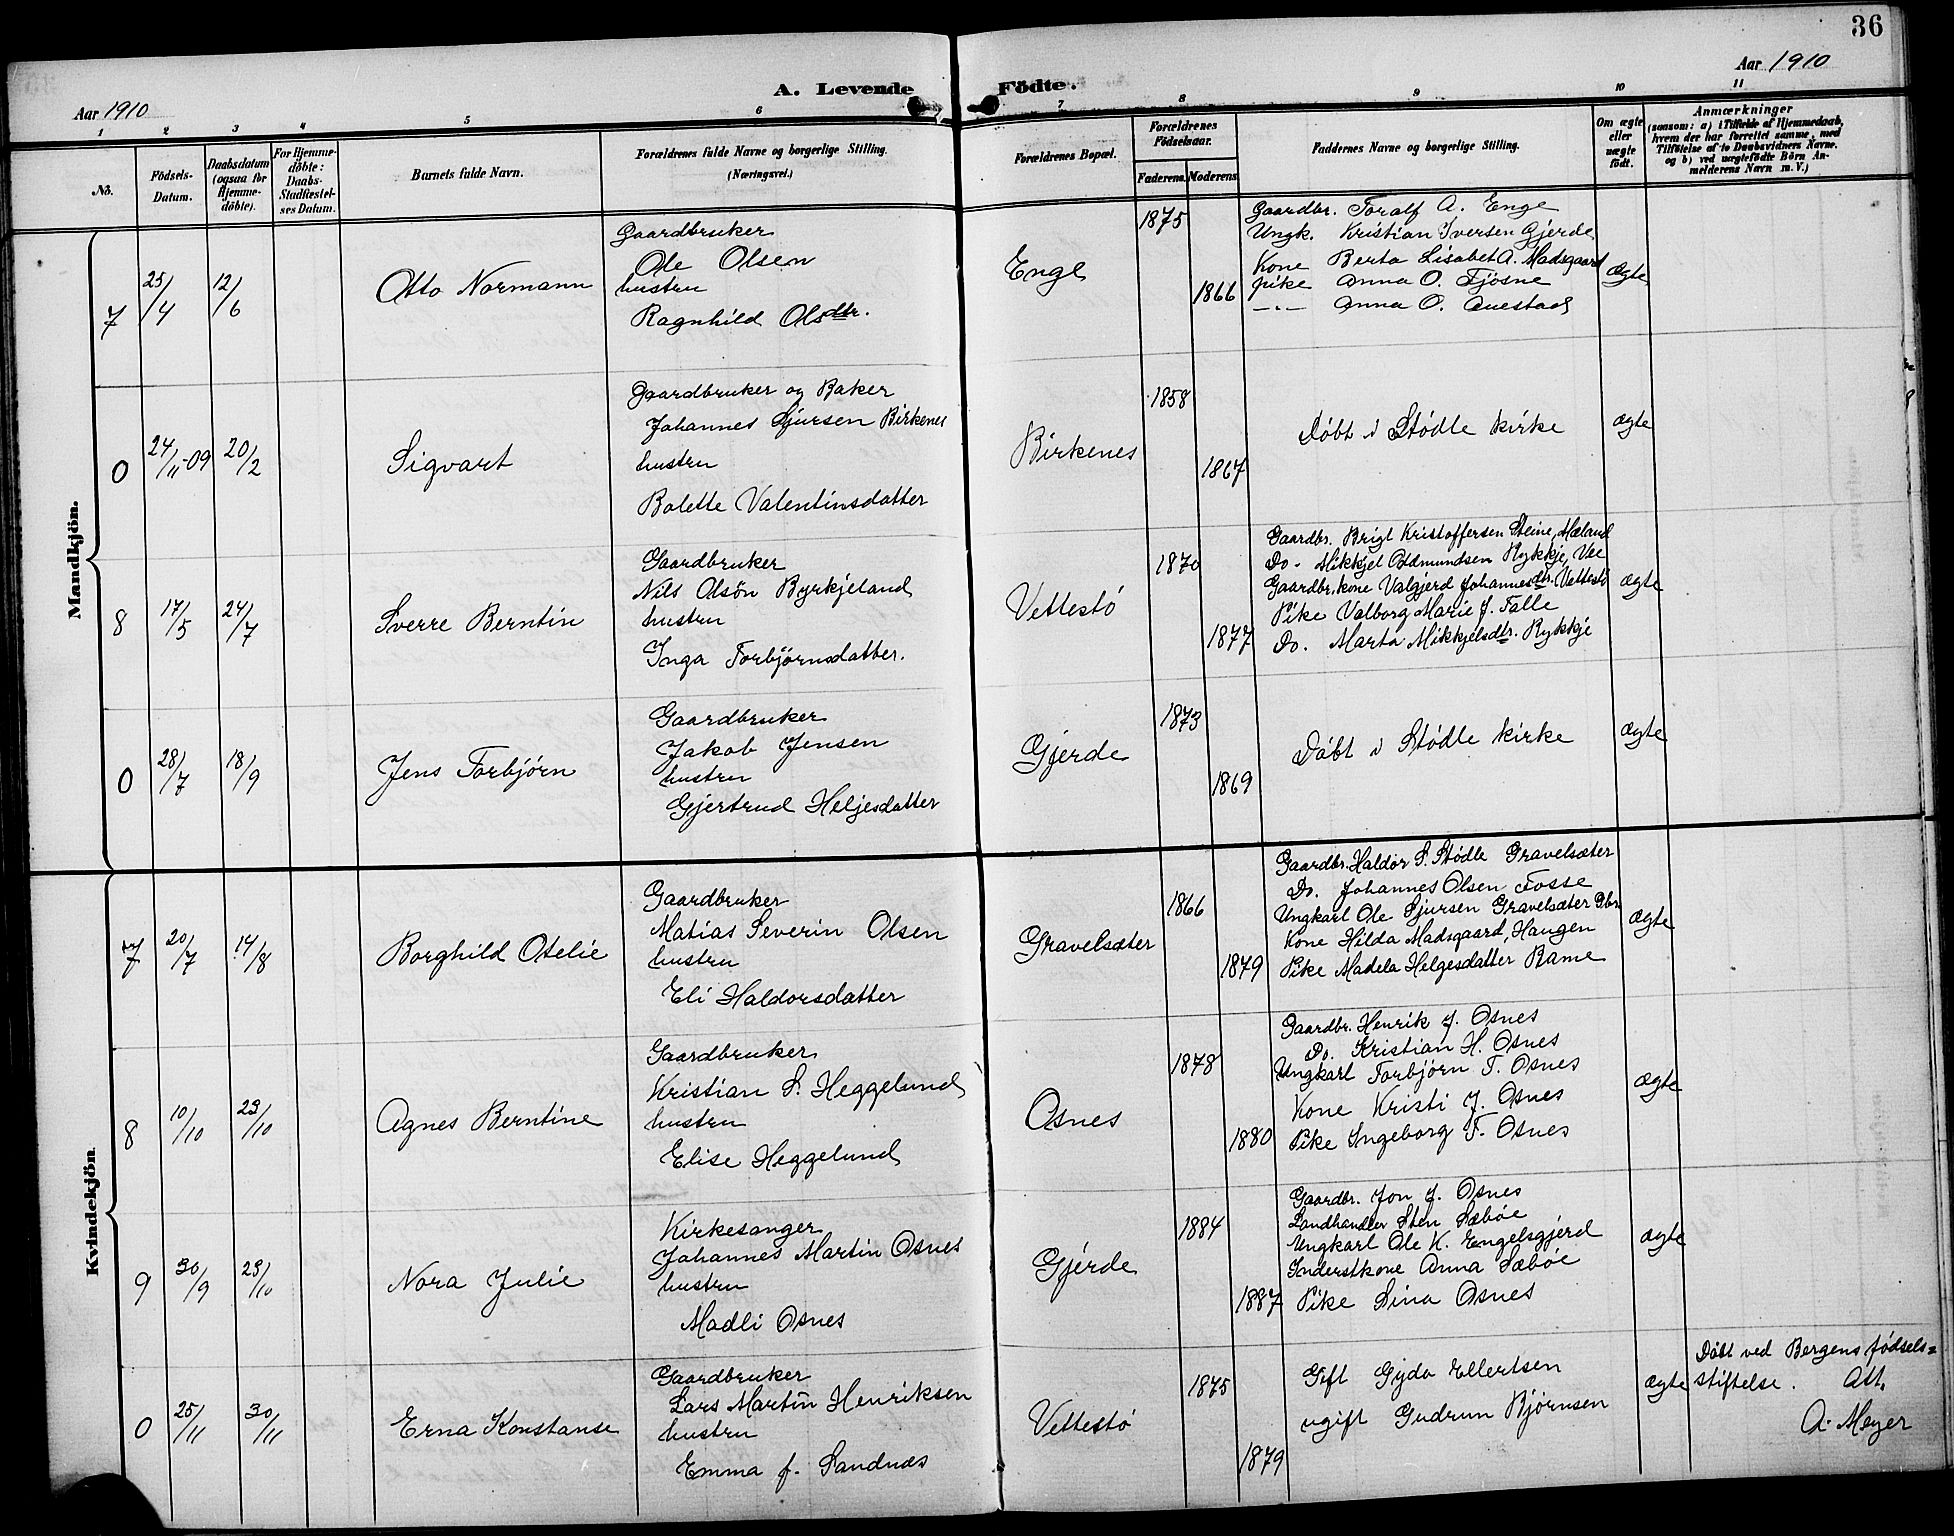 36
Aar 1910
A. Levende Födte.
Aar 1910
1 2 3 4 5 6 7 8 9 10 11
No.
Födsels-Datum.
Daabsdatum (ogsaa for Hjemme-döbte).
For Hjemme-döbte: Daabs-Stadfæstel-ses Datum.
Barnets fulde Navn.
Forældrenes fulde Navne og borgerlige Stilling.
(Næringsvei.)
Forældrenes Bopæl.
Forældrenes Födselsaar.
Faderens. Moderens.
Faddernes Navne og borgerlige Stilling.
Om ægte eller uægte födt.
Anmærkninger
(saasom: a) i Tilfælde af Hjemmedaab,
hvem der har forrettet samme, med
Tilföielse af to Daabsvidners Navne.
og b) ved uægtefödte Börn An-
melderens Navn m. V.)
Mandkjön.
7 25/4 12/6 Otto Normann
Gaardbruker
Ole Olsen
hustru
Ragnhild Olsdtr.
Enge 1875 1866
Gaardbr. Toralf A. Enge
Ungk. Kristian Iversen Gjerde
Kone Berta Lisabet A. Madsgaard
pike Anna O. Fjösne
—"— Anna O. Auestad
ægte
0 24/11-09 20/2 Sigvart
Gaardbruker og Baker
Johannes Sjursen Birkenes
hustru
Bolette Valentinsdatter
Birkenes 1858 1867
Döbt i Stödle kirke
ægte
8 17/5 24/7 Sverre Berntin
Gaardbruker
Nils Olsön Byrkjeland
hustru
Inga Torbjörnsdatter.
Vettestö 1870 1877
Gaardbr. Brigt Kristoffersen Steine, Mæland
Do. Mikkjel Odmundsen Rykkje, Vee
Gaardbr.kone Valgjerd Johannesdtr. Vettestö
Pike Valborg Marie J. Talle
Do. Marta Mikkjelsdtr. Rykkje
ægte
0 28/7 18/9 Jens Torbjörn
Gaardbruker
Jakob Jensen
hustru
Gjertrud Heljesdatter
Gjerde 1873 1869
Döbt i Stödle kirke
ægte
Kvindekjön.
7 20/7 14/8 Borghild Otelie
Gaardbruker
Matias Severin Olsen
hustru
Eli Haldorsdatter
Gravelsæter 1866 1879
Gaardbr. Haldor S. Stödle Gravelsæter
Do. Johannes Olsen Fosse
Ungkarl Ole Sjursen Gravelsæter Gbr.
Kone Hilda Madsgaard, Haugen
Pike Madela Helgesdatter Rame
ægte
8 10/10 23/10 Agnes Berntine
Gaardbruker
Kristian S. Heggelund
hustru
Elise Heggelund
Osnes 1878 1880
Gaardbr. Henrik J. Osnes
Do. Kristian H. Osnes
Ungkarl Torbjörn T. Osnes
Kone Kristi J. Osnes
Pike Ingeborg T. Osnes
ægte
9 30/9 23/10 Nora Julie
Kirkesanger
Johannes Martin Osnes
hustru
Madli Osnes
Gjerde 1884 1887
Gaardbr. Jon J. Osnes
Landhandler Sten Sæböe
Ungkarl Ole K. Engelsgjerd
Inderstkone Anna Sæböe
Pike Lina Osnes
ægte
0 25/11 30/11 Erna Konstanse
Gaardbruker
Lars Martin Henriksen
hustru
Emma f. Sandnæs
Vettestö 1875 1879
Gift Gyda Ellertsen
ugift Gudrun Björnsen
ægte
Döbt ved Bergens födsels=
stiftelse. Att.
A. Meyer